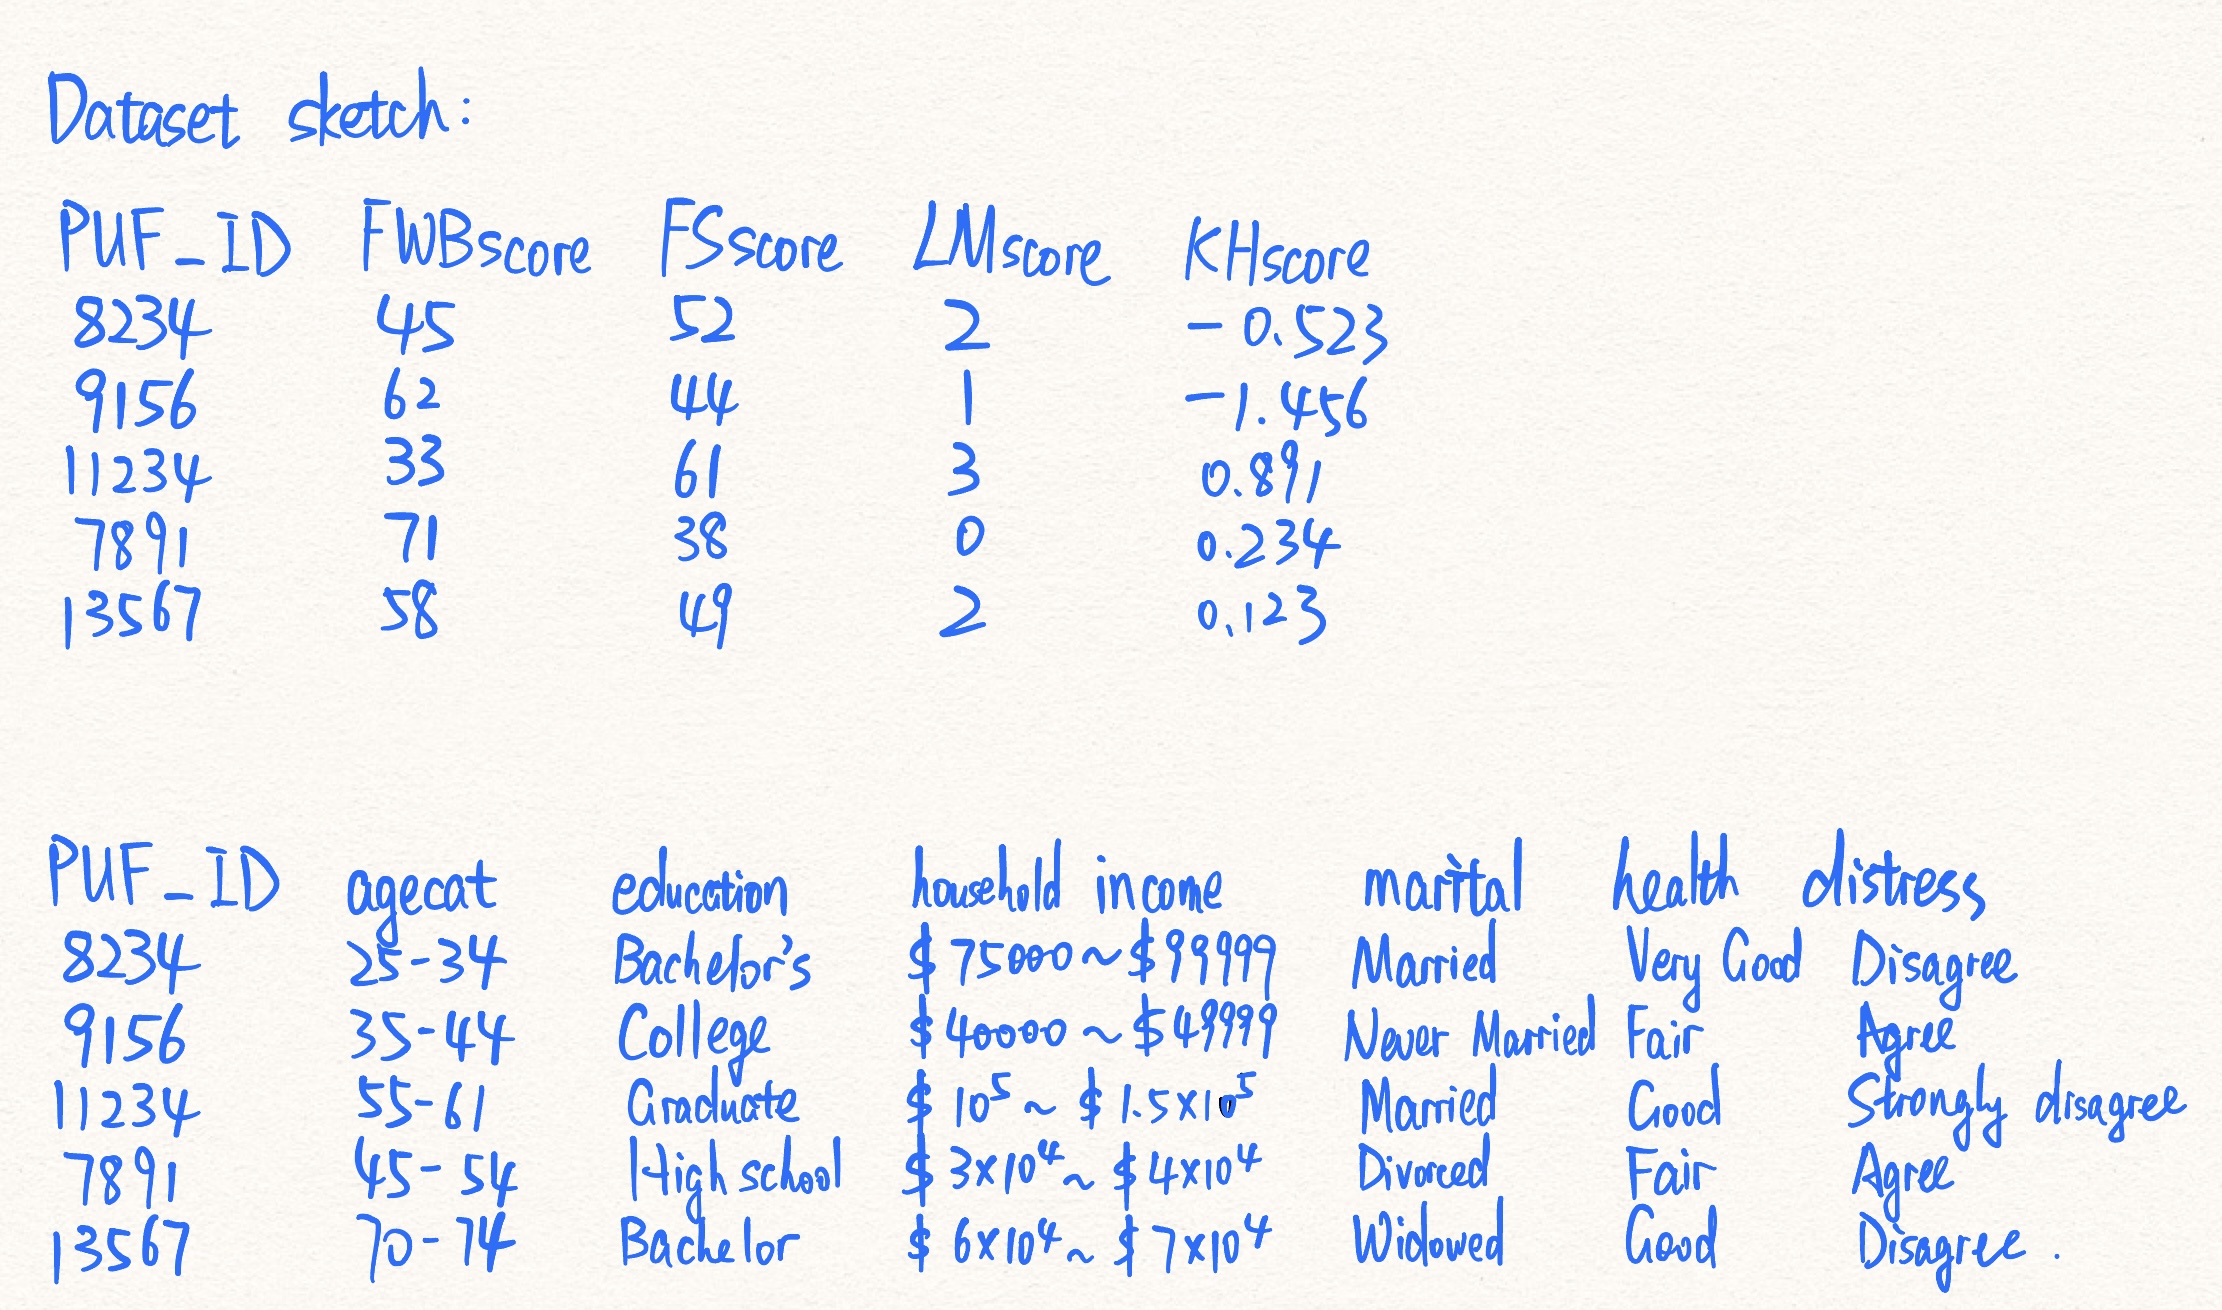 Dataset sketch:
PUF_ID FWBscore FSscore LMscore KHscore
8234 45 52 2 -0.523
9156 62 44 1 -1.456
11234 33 61 3 0.891
7891 71 38 0 0.234
13567 58 49 2 0.123
PUF_ID agecat education household income marital health distress
8234 25-34 Bachelor's $75000~$99999 Married Very Good Disagree
9156 35-44 College $40000~$49999 Never Married Fair Agree
11234 55-61 Graduate $10⁵~$1.5×10⁵ Married Good Strongly disagree
7891 45-54 High school $3×10⁴~$4×10⁴ Divorced Fair Agree
13567 70-74 Bachelor $6×10⁴~$7×10⁴ Widowed Good Disagree.